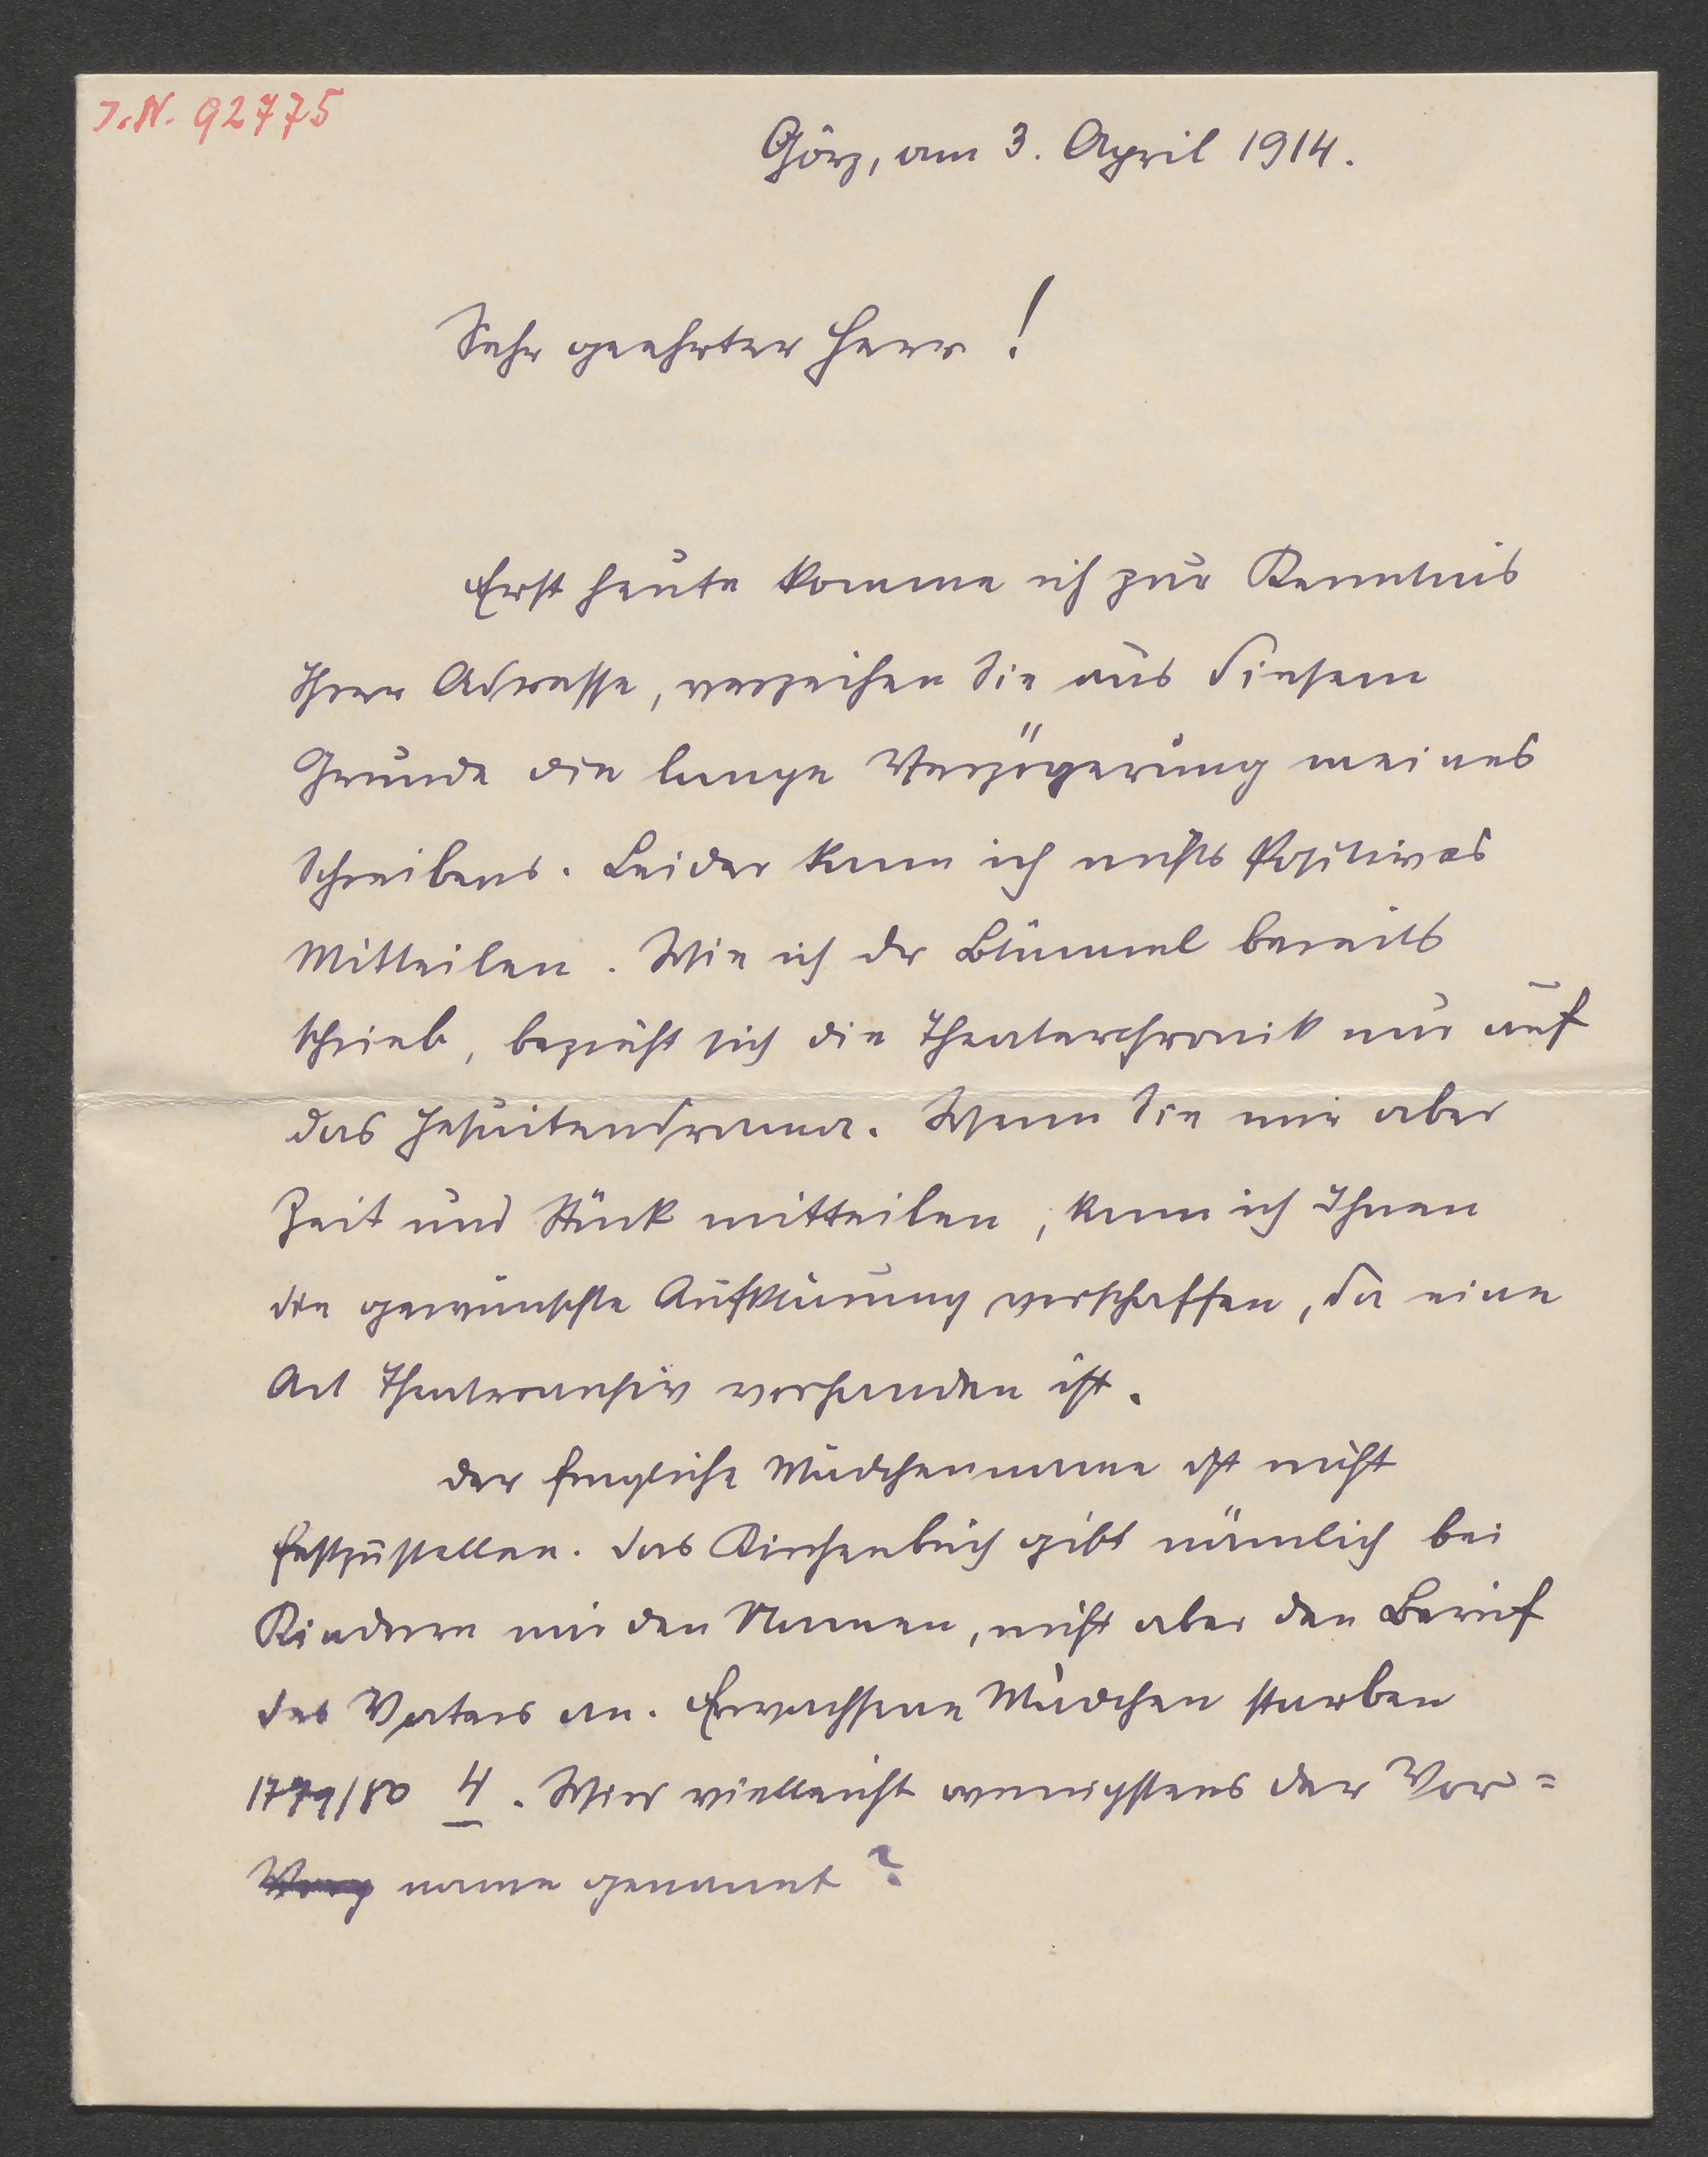 J.N. 92775
Görz, am 3. April 1914.
Sehr geehrter Herr!
Erst heute komme ich zur Kenntnis
Ihrer Adresse, verzeihen Sie aus diesem
Grunde die lange Verzögerung meines
Schreibens. Leider kann ich nichts Positives
Mitteilen. Wie ich Dr Blümml bereits
schrieb, bezieht sich die Theaterchronik nur auf
das Jesuitendrama. Wenn Sie mir aber
Zeit und Stück mitteilen, kann ich Ihnen
die gewünschte Aufklärung verschaffen, da eine
Art Theaterarchiv vorhanden ist.
Der fragliche Mädchenname ist nicht
festzustellen. Das Kirchenbuch gibt nämlich bei
Kindern nur den Namen, nicht aber den Beruf
des Vaters an. Erwachsene Mädchen starben
1779/80 4. Wird vielleicht wenigstens der Vor=
name genannt?